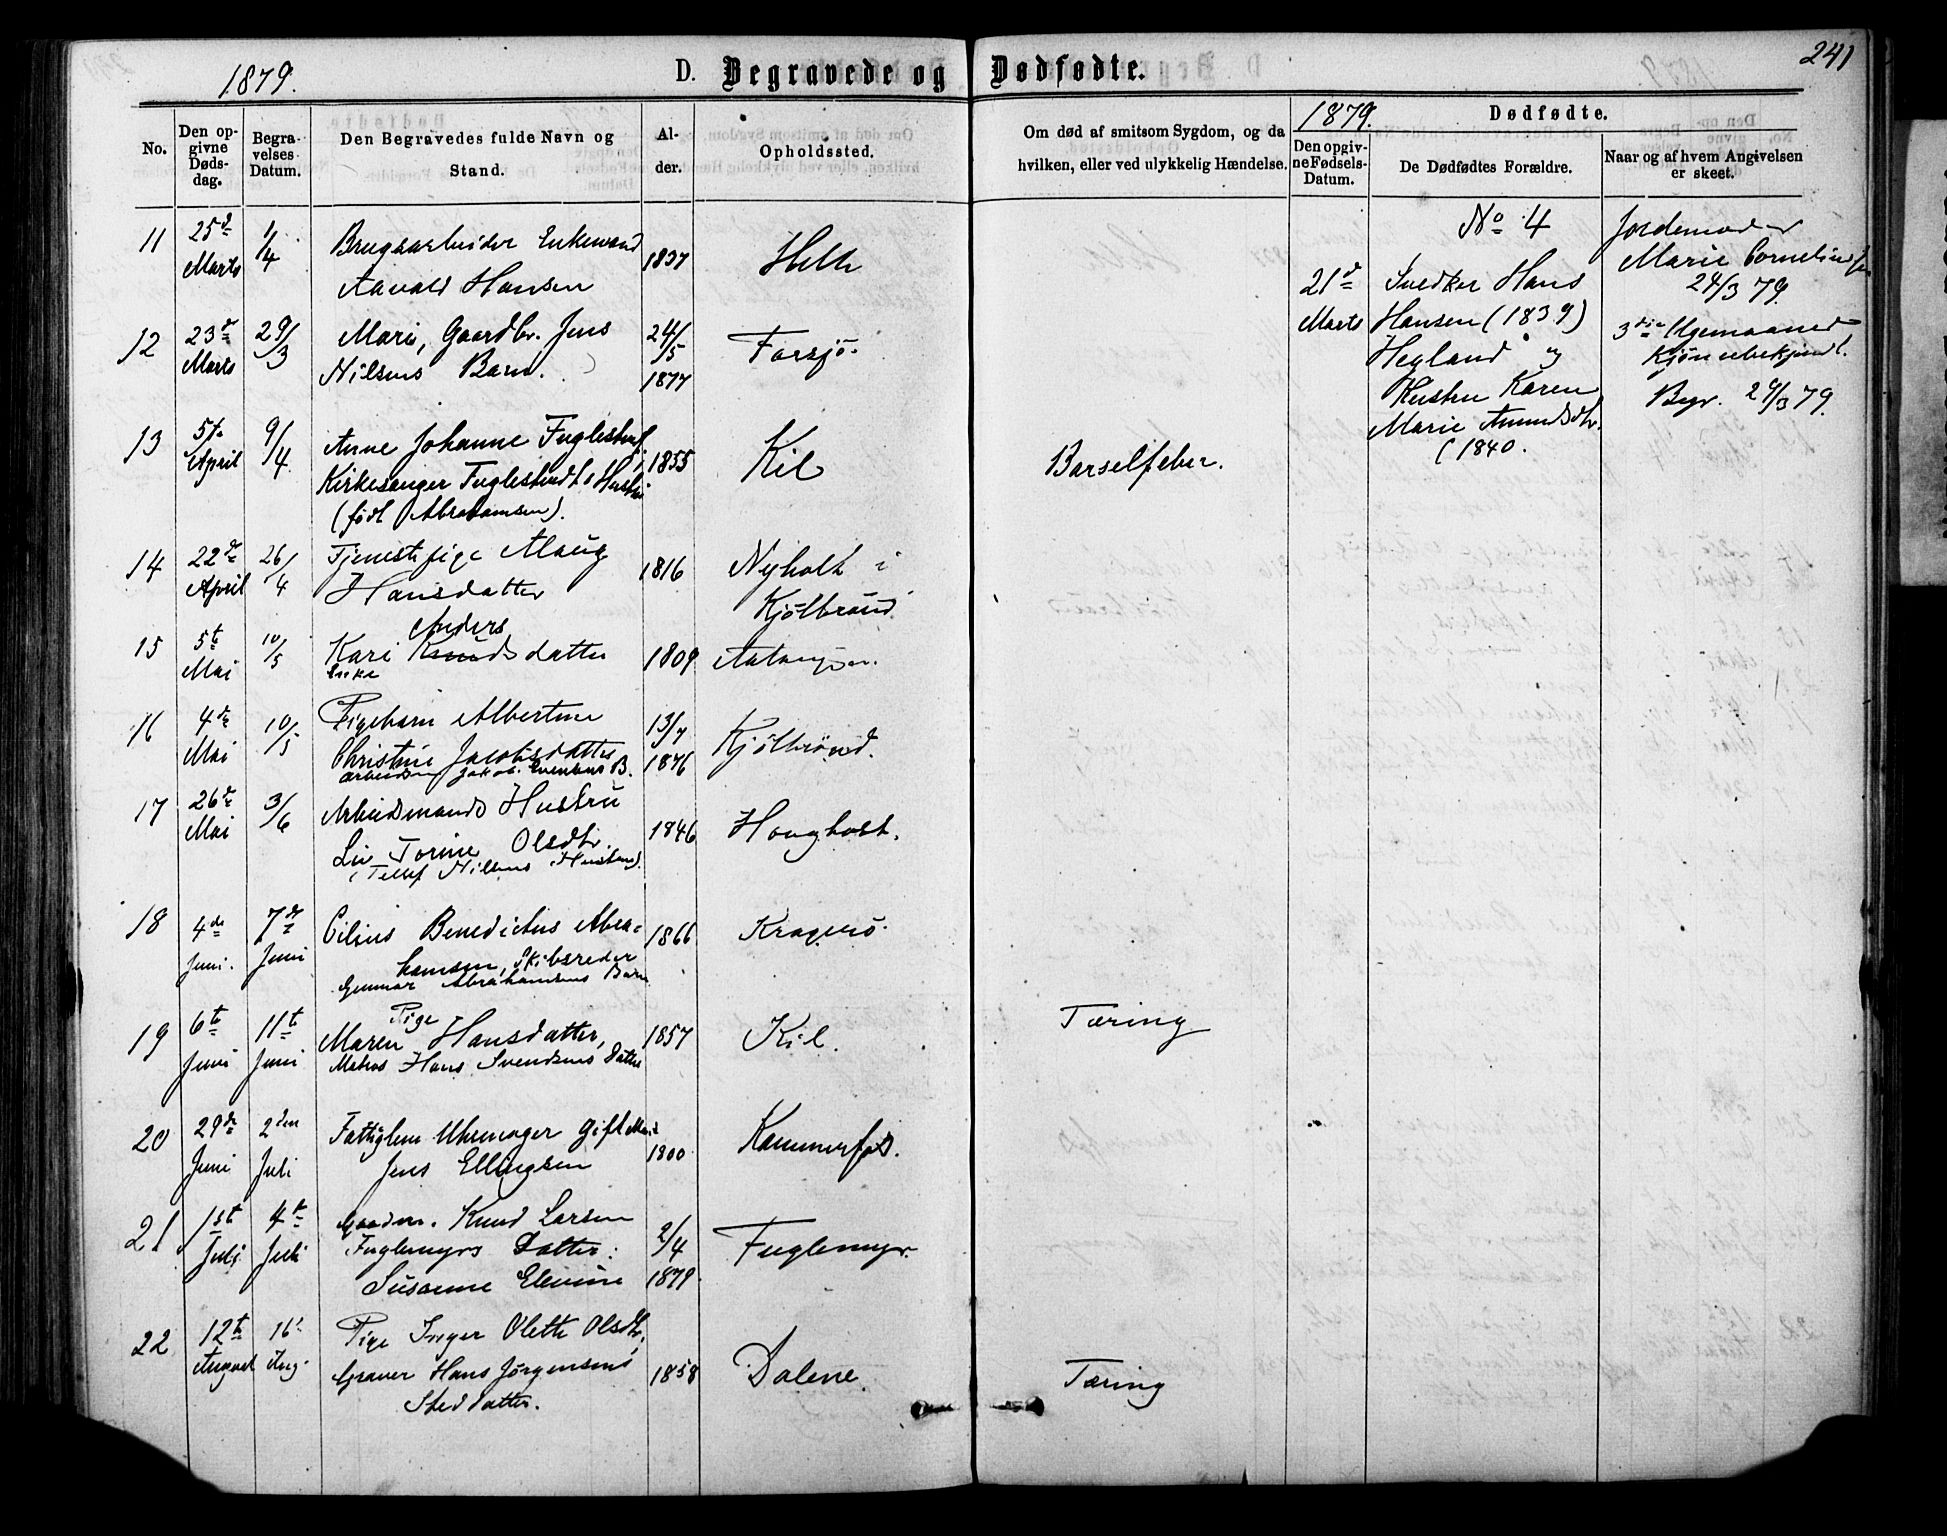 1879.
D. Begravede og Dødfødte.
241
No.
Den op-
givne
Døds-
dag.
Begra
velses
Datum.
Den Begravedes fulde Navn og
Stand.
Al-
der.
Opholdssted.
Om død af smitsom Sygdom, og da
hvilken, eller ved ulykkelig Hændelse.
1879.
Dødfødte.
Den opgiv-
ne Fødsels-
Datum.
De Dødfødtes Forældre.
Naar og af hvem Angivelsen
er skeet.
11
25de
Marts
1/4
Brugsarbeider Enkemand
Aavald Hansen
1837
Helle
12
23de
Marts
29/3
Mari, Gaardbr. Jens
Nilsens Barn.
24/5
1877
Farsjø.
13
5te
April
9/4
Anne Johanne Fuglestvedt,
Kirkesanger Fuglestvedts Hustru
(født Abrahamsen).
1855
Kil
Barselfeber.
14
22de
April
26/4
Tjenestepige Aslaug
Hansdatter
1816
Nyholt i
Kjølbrønd
15
5t
Mai
10/5
Anders
Kari Knudsdatter
Enke
1809
16
4de
Mai
10/5
Pigebarn Albertine
Christine Jacobsdatter
Arbeidsm Jakob Evensens B.
13/7
1876
Kjølbrønd.
17
26de
Mai
3/6
Arbeidsmands Hustru
Liv Torine Olsdtr.
(Tellef Nilsens Hustru).
1846
Haugholt.
18
4de
Juni.
7de
Juni
Cilius Benedictus Abra-
hamsen, Skibsreder
Gunnar Abrahamsens Barn
1866
Kragerø.
19
6te
Juni
11te
Juni
Pige
Maren Hansdatter,
Matros Hans Svendsens Datter
1857
Kil.
Tæring
20
29de
Juni
2den
Juli
Fattiglem Uhrmager gift Mand
Jens Ellingsen
1800
Kammerfos.
21
1st
Juli
4t
Juli
Gaardm. Knud Larsen
Fuglemyrs Datter:
Susanne Elevine
2/4
1879
Fuglemyr.
22
12t
August
16'
Aug.
Pige Inger Olette Olsdtr,
Graver Hans Jørgensens
Steddatter.
1858
Dalene.
Tæring
No 4
21de
Marts
Snedker Hans
Hansen (1839)
Hegland og
Hustru Karen
Marie Amundsdtr.
(1840.
Jordemoder
Marie Corneliusen
24/3 79.
3die Ugemaaned
Kjøn ubekjendt.
Begr. 29/3 79.